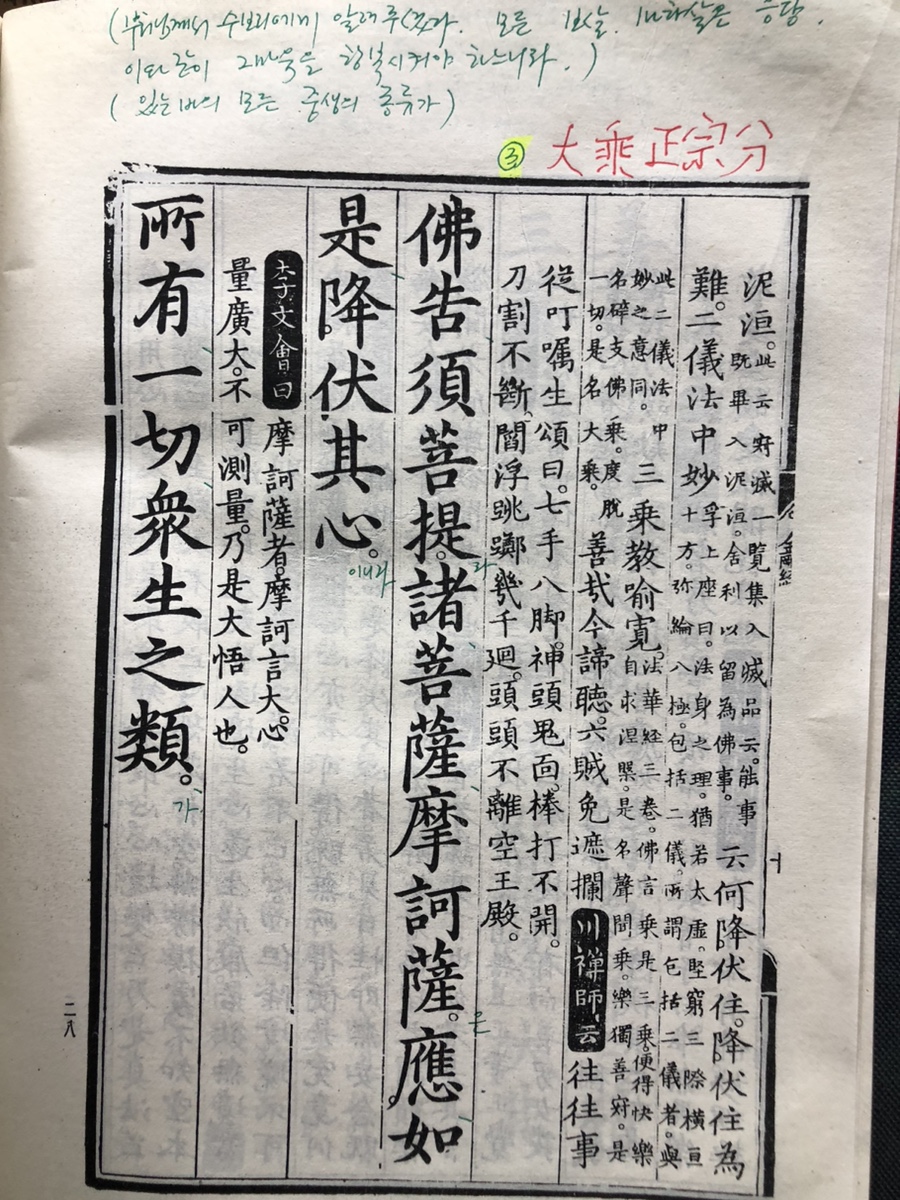 (부처님께서 수보리에게 알려주셨다. 모든 보살 마하살은 응당.
이와 같이 그 마음을 항복시켜야 하느니라.)
(있는 바의 모든 중생의 종류가)
③ 大乘正宗分
泥洹。
此云寂滅。一覽集入滅品云。能事
既畢入泥洹。舍利以留為佛事。
云何降伏住。降伏住為
難。二儀法中妙
孚上座曰。法身之理。猶若太虛。竪窮三際。橫亘
十方。弥綸八極。包括二儀。所謂包括二儀者。與
此二儀法中
妙之意同。
三乘教喻寬。
法華經三卷。佛言乘是三乘。便得快樂
自求涅槃。是名聲聞乘。樂獨善寂。是
名碎支佛乘。度脫
一切。是名大乘。
善哉今諦聽。六賊免遮攔 川禪師云 往往事
從叮嘱生 頌曰。七手八脚。神頭鬼面。棒打不開。
刀割不斷。閻浮跳躑幾千廻。頭頭不離空王殿。
佛告須菩提。라 諸菩薩摩訶薩。은 應如
是降伏其心。이니라
李文會曰 摩訶薩者。摩訶言大。心
量廣大。不可測量。乃是大悟人也。
所有一切衆生之類。가
金剛經
十
二八